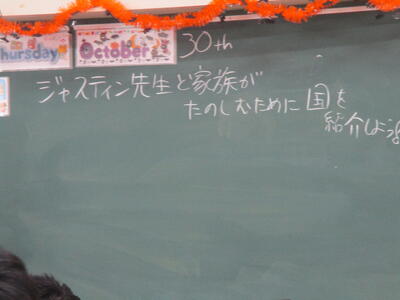 Thursday October 30th
ジャスティン先生と家族が
たのしむために国を
紹介しよう